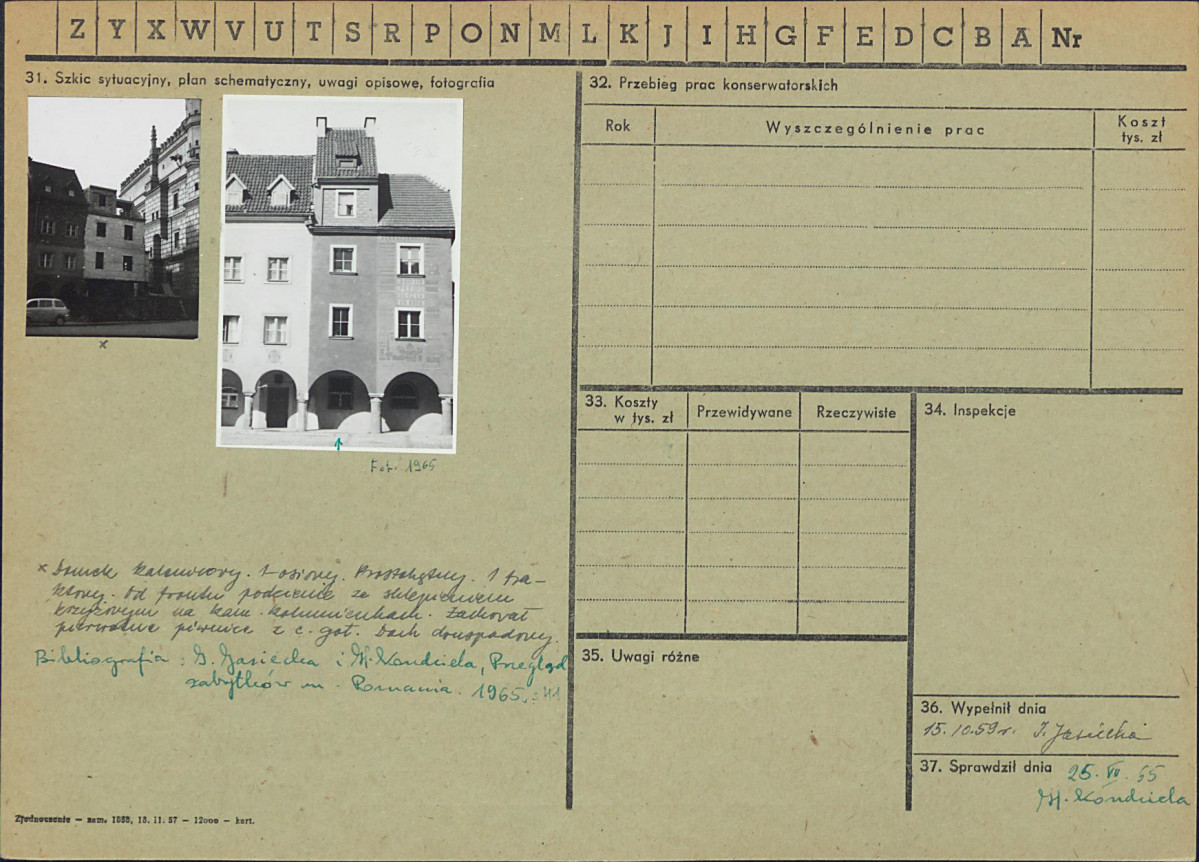 Z Y X W V U T S R P O N M L K J I H G F E D C B A Nr
31. Szkic sytuacyjny, plan schematyczny, uwagi opisowe, fotografia
x
Fot. 1965
x Domek kalenicowy. 1-osiowy. Prostokątny. 1 tra-
ktowy. Od frontu podcienie ze sklepieniem
krzyżowym na kam. kolumienkach. Zachował
pierwotne piwnice z c. got. Dach dwuspadowy.
Bibliografia: I. Jasiecka i H. Kondziela, Przegląd
zabytków m. Poznania. 1965, s 41
Zjednoczenie — zam. 1888, 18. 11. 57 — 12000 — kart.
32. Przebieg prac konserwatorskich
Rok Wyszczególnienie prac Koszt
tys. zł
33. Koszty
w tys. zł Przewidywane Rzeczywiste
34. Inspekcje
35. Uwagi różne
36. Wypełnił dnia
15.10.59 r. I. Jasiecka
37. Sprawdził dnia 25. VII. 65
H. Kondziela